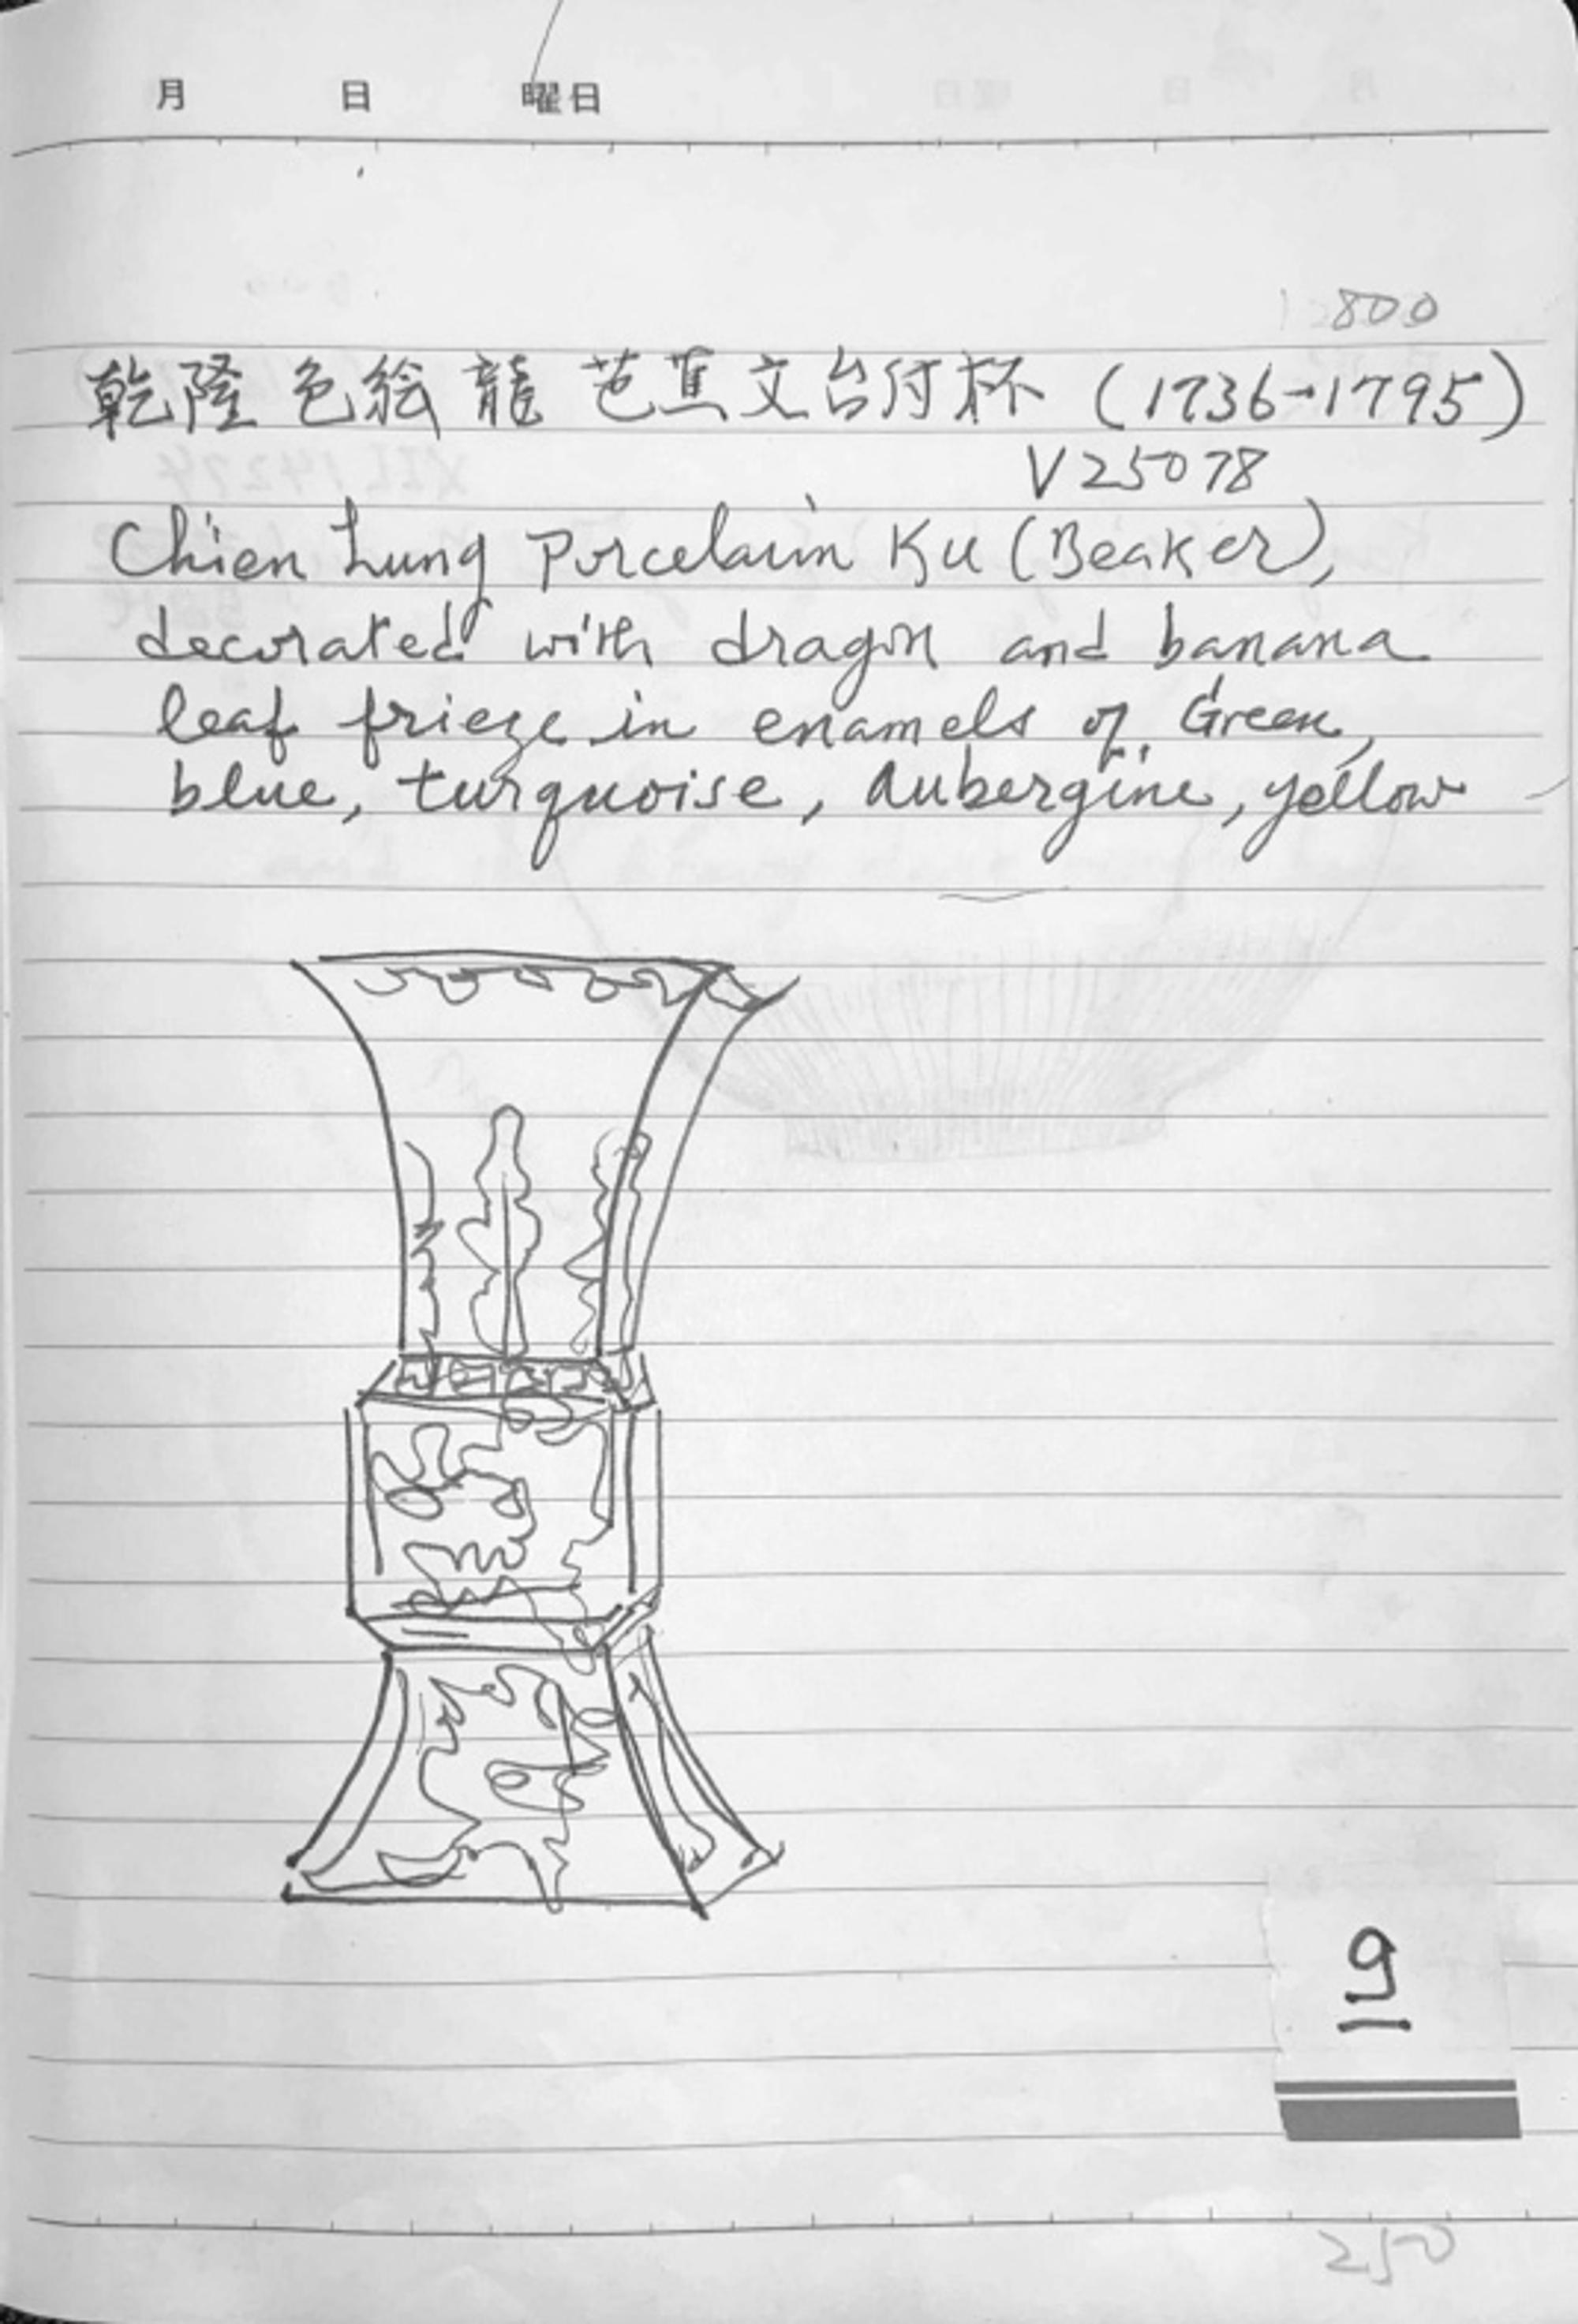 月 日 曜日
800
乾隆 色絵 龍 芭蕉文台付杯 (1736-1795)
V25078
Chien Lung Porcelain Ku (Beaker),
decorated with dragon and banana
leaf frieze in enamels of Green,
blue, turquoise, Aubergine, yellow
9
250